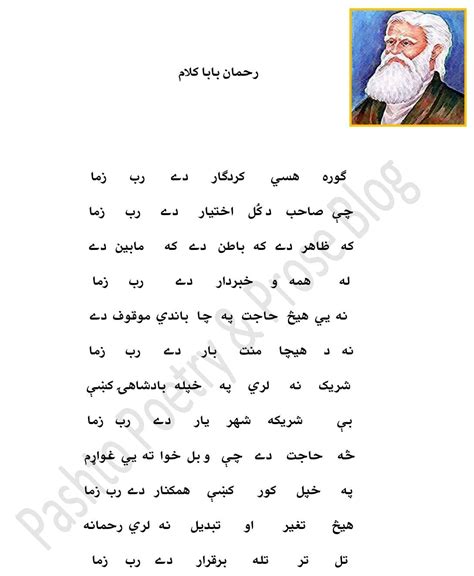 رحمان بابا کلام
ګوره هسې کردګار دے رب زما
چې صاحب د کُل اختیار دے رب زما
که ظاهر دے که باطن دے که مابین دے
له همه و خبردار دے رب زما
نه يي هیڅ حاجت په چا باندي موقوف دے
نه د هیچا منت بار دے رب زما
شریک نه لري په خپله بادشاهۍ کښې
بې شریکه شهر یار دے رب زما
څه حاجت دے چې و بل خوا ته يي غواړم
په خپل کور کښې همکنار دے رب زما
هیڅ تغیر او تبدیل نه لري رحمانه
تل تر تله برقرار دے رب زما
Pashto Poetry & Prose Blog